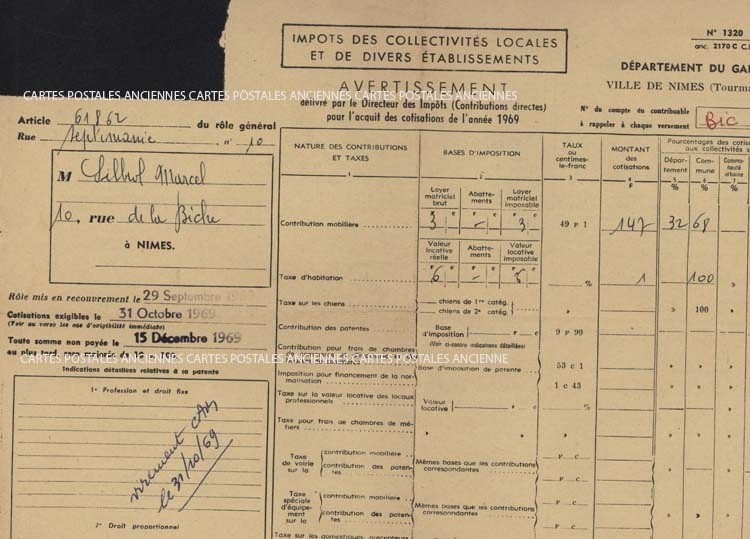 IMPOTS DES COLLECTIVITÉS LOCALES
ET DE DIVERS ÉTABLISSEMENTS
N° 1320
anc. 2170 C
DÉPARTEMENT DU
VILLE DE NIMES
CARTES POSTALES ANCIENNES CARTES POSTALES ANCIENNES CARTES POSTALES ANCIENNE
AVERTISSEMENT
délivré par le Directeur des Impôts (Contributions directes)
pour l'acquit des cotisations de l'année 1969
N° du compte du contribuable
à rappeler à chaque versement
Bic
Article 61862 du rôle général
Rue Septimanie n° 10
M Marcel
10, rue de la Biche
à NIMES.
Rôle mis en recouvrement le 29 Septembre
Cotisations exigibles le 31 Octobre 1969
(Voir au verso les cas d'exigibilité immédiate)
Toute somme non payée le 15 Décembre 1969
CARTES POSTALES ANCIENNES CARTES POSTALES ANCIENNES CARTES POSTALES ANCIENNE
Indications détaillées relatives à la patente
1° Profession et droit fixe
virement
le 31/10/69
2° Droit proportionnel
NATURE DES CONTRIBUTIONS
ET TAXES
BASES D'IMPOSITION
TAUX
ou
centimes-
le-franc
MONTANT
des
cotisations
Pourcentages des
aux collectivités
Dépar-
tement
Com-
mune
Commu-
nauté
urbaine
1 2 3 4 5 6 7
F % % %
Loyer
matriciel
brut
Abatte-
ments
Loyer
matriciel
imposable
F c F c F c
Contribution mobilière 3 - 3 49 F 1 147 32 68 »
Valeur
locative
réelle
Abatte-
ments
Valeur
locative
imposable
F c F c F c
Taxe d'habitation 6 - % 1 100 »
Taxe sur les chiens
chiens de 1re catég.
chiens de 2e catég.
» 100 »
Contribution des patentes
Base
d'imposition
» F c
9 F 99
(Voir ci-contre indications détaillées)
Contribution pour frais de chambres
Base d'imposition de patente
53 c 1
Imposition pour financement de la nor-
malisation
1 c 43
Taxe sur la valeur locative des locaux
professionnels
Valeur
locative
» F c
%
Taxe pour frais de chambres de mé-
tiers
Taxe
de voirie
sur la
contribution mobilière
contribution des paten-
tes
Mêmes bases que les contributions
correspondantes
F c
F c
Taxe
spéciale
d'équipe-
ment
sur la
contribution mobilière
contribution des paten-
tes
Mêmes bases que les contributions
correspondantes
F c
F c